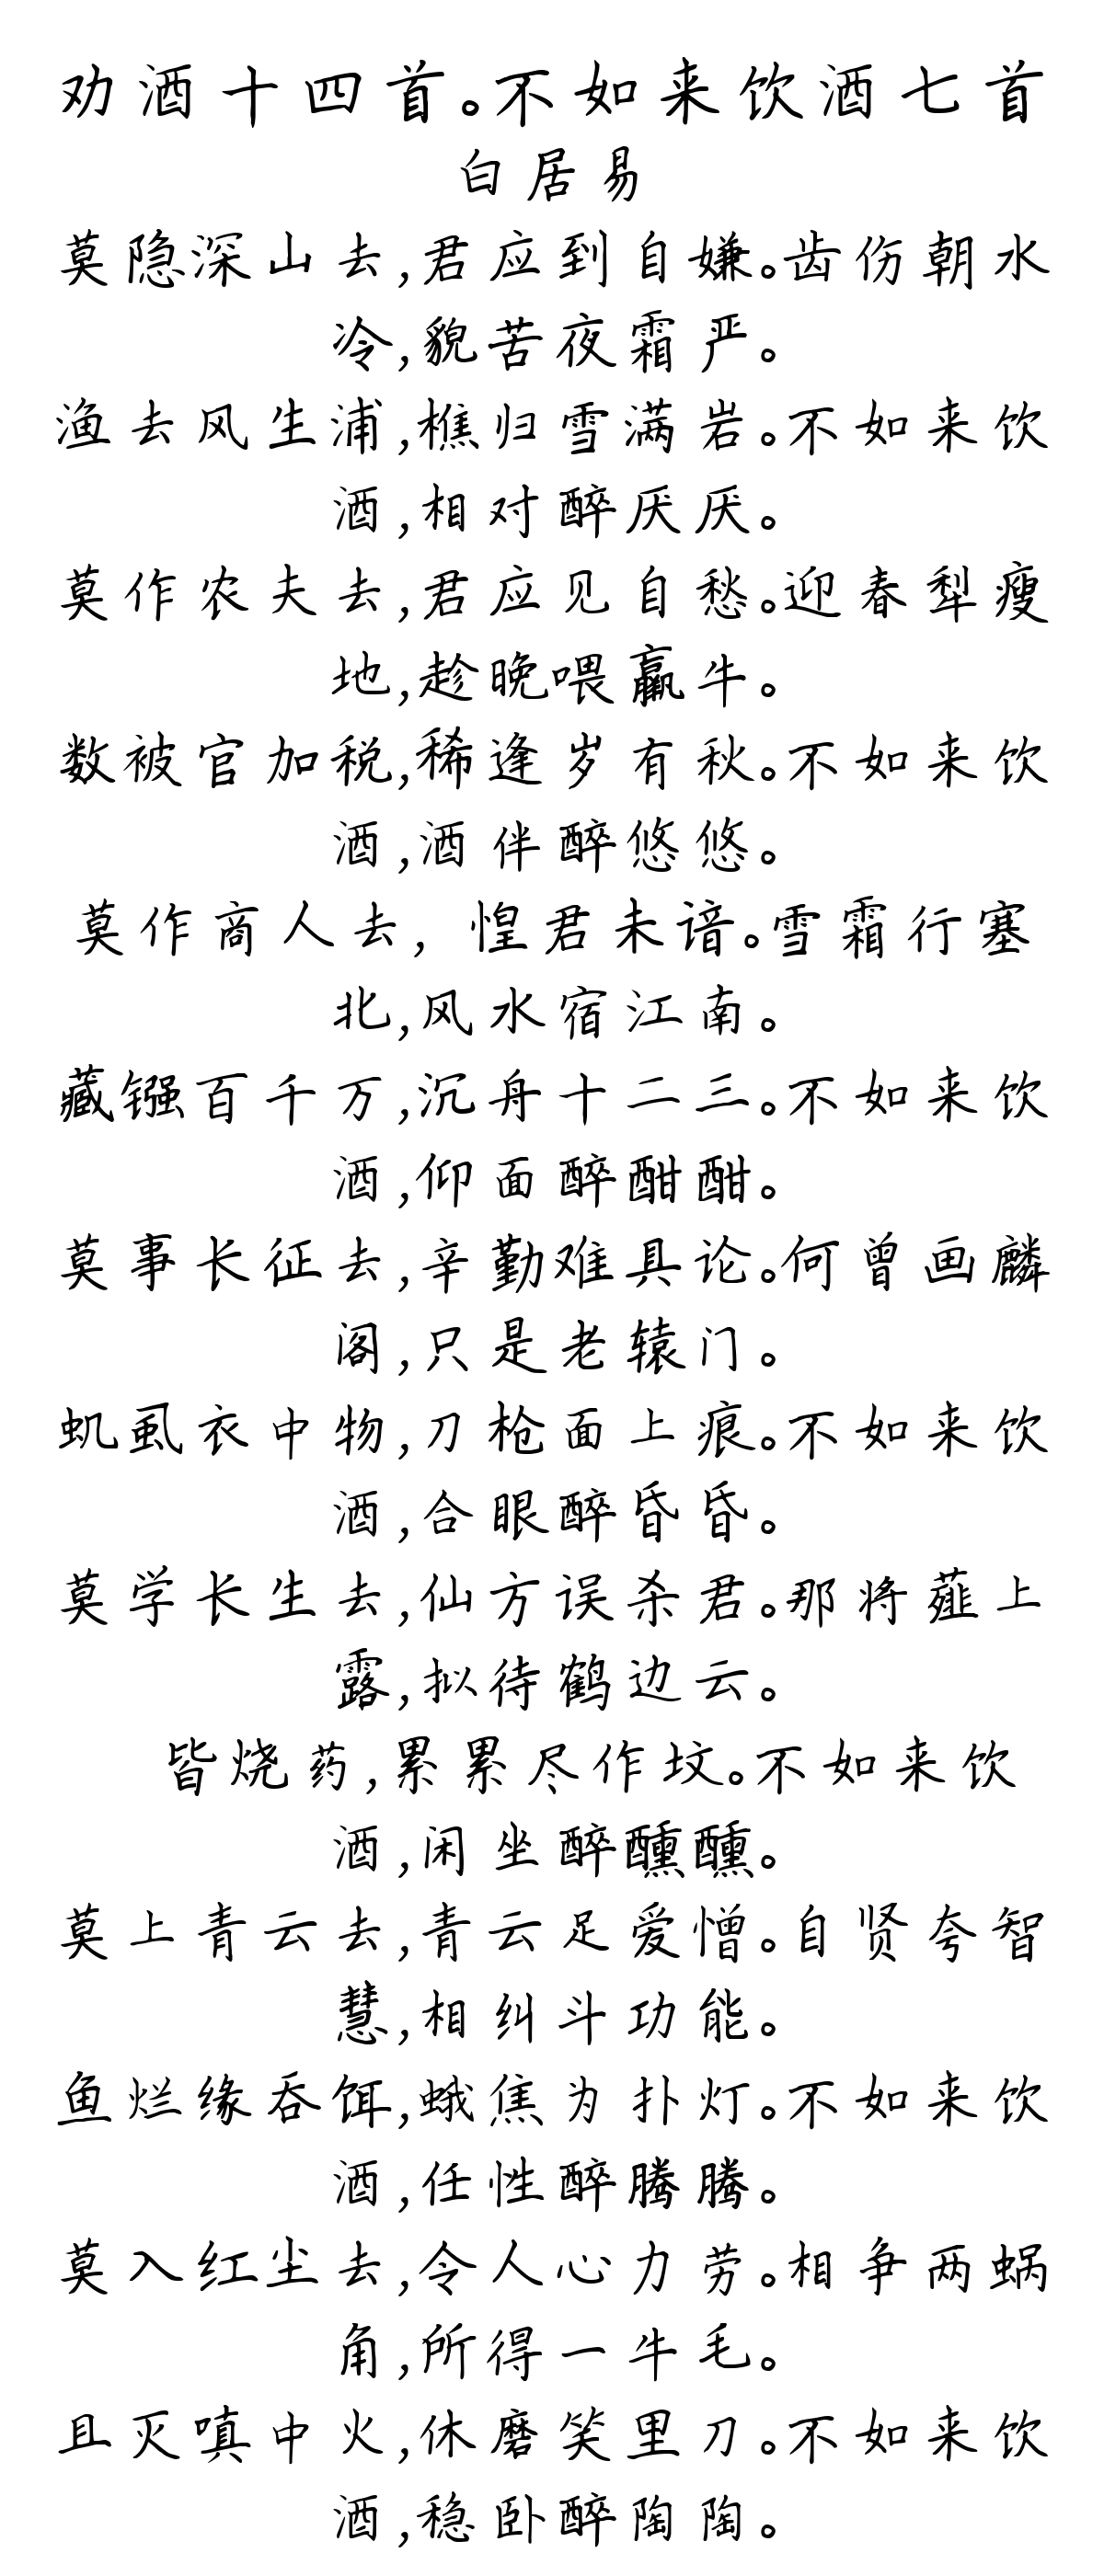 劝酒十四首。不如来饮酒七首
白居易
莫隐深山去,君应到自嫌。齿伤朝水
冷,貌苦夜霜严。
渔去风生浦,樵归雪满岩。不如来饮
酒,相对醉厌厌。
莫作农夫去,君应见自愁。迎春犁瘦
地,趁晚喂羸牛。
数被官加税,稀逢岁有秋。不如来饮
酒,酒伴醉悠悠。
莫作商人去,惶君未谙。雪霜行塞
北,风水宿江南。
藏镪百千万,沉舟十二三。不如来饮
酒,仰面醉酣酣。
莫事长征去,辛勤难具论。何曾画麟
阁,只是老辕门。
虮虱衣中物,刀枪面上痕。不如来饮
酒,合眼醉昏昏。
莫学长生去,仙方误杀君。那将薤上
露,拟待鹤边云。
皆烧药,累累尽作坟。不如来饮
酒,闲坐醉醺醺。
莫上青云去,青云足爱憎。自贤夸智
慧,相纠斗功能。
鱼烂缘吞饵,蛾焦为扑灯。不如来饮
酒,任性醉腾腾。
莫入红尘去,令人心力劳。相争两蜗
角,所得一牛毛。
且灭嗔中火,休磨笑里刀。不如来饮
酒,稳卧醉陶陶。